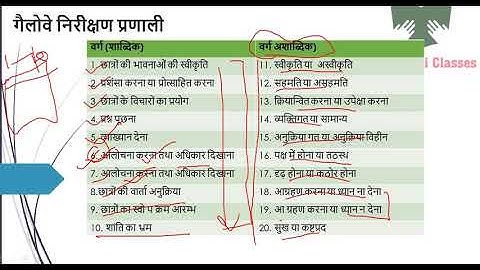 गैलोवे निरीक्षण प्रणाली
i Classes
वर्ग (शाब्दिक)
वर्ग अशाब्दिक)
1. छात्रों की भावनाओं की स्वीकृति
11. स्वीकृति या अस्वीकृति
2. प्रशंसा करना या प्रोत्साहित करना
12. सहमति या असहमति
3. छात्रों के विचारों का प्रयोग
13. क्रियान्वित करना या उपेक्षा करना
4. प्रश्न पूछना
14. व्यक्तिगत या सामान्य
5. व्याख्यान देना
15. अनुक्रिया गत या अनुक्रिया विहीन
6. आलोचना करना तथा अधिकार दिखाना
16. पक्ष में होना या तठस्थ
7. आलोचना करना तथा अधिकार दिखाना
17. दृढ़ होना या कठोर होना
8.छात्रों की वार्ता अनुक्रिया
18. आग्रहण करना या ध्यान ना देना
9. छात्रों का स्वो प क्रम आरम्भ
19. आ ग्रहण करना या ध्यान न देना
10. शांति का भ्रम
20. सुख या कष्टप्रद